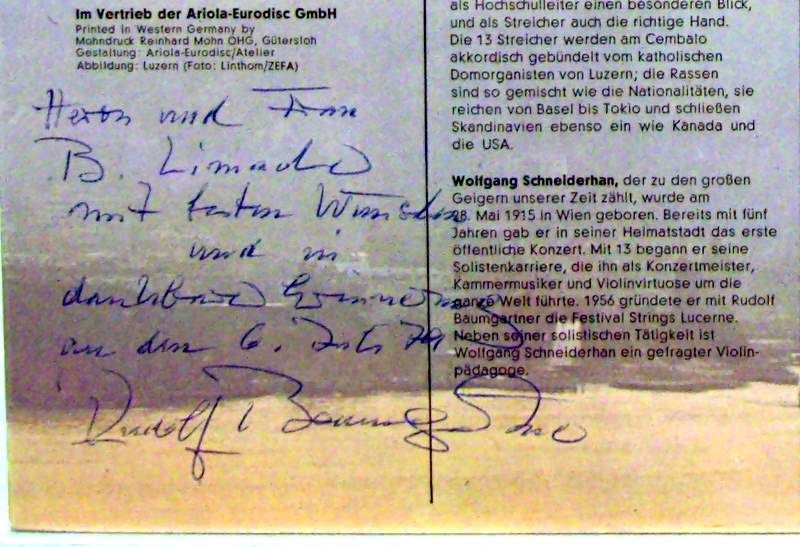 Im Vertrieb der Ariola-Eurodisc GmbH
Printed in Western Germany by
Mohndruck Reinhard Mohn OHG, Gütersloh
Gestaltung: Ariola-Eurodisc/Atelier
Abbildung: Luzern (Foto: Linthom/ZEFA)
Herrn und Frau
B.
mit besten Wünschen
und in
dankbarer Erinnerung
an den 6. 79
Rudolf Baumgartner
als Hochschulleiter einen besonderen Blick,
und als Streicher auch die richtige Hand.
Die 13 Streicher werden am Cembalo
akkordisch gebündelt vom katholischen
Domorganisten von Luzern; die Rassen
sind so gemischt wie die Nationalitäten, sie
reichen von Basel bis Tokio und schließen
Skandinavien ebenso ein wie Kanada und
die USA.
Wolfgang Schneiderhan, der zu den großen
Geigern unserer Zeit zählt, wurde am
28. Mai 1915 in Wien geboren. Bereits mit fünf
Jahren gab er in seiner Heimatstadt das erste
öffentliche Konzert. Mit 13 begann er seine
Solistenkarriere, die ihn als Konzertmeister,
Kammermusiker und Violinvirtuose um die
ganze Welt führte. 1956 gründete er mit Rudolf
Baumgartner die Festival Strings Lucerne.
Neben seiner solistischen Tätigkeit ist
Wolfgang Schneiderhan ein gefragter Violin-
pädagoge.